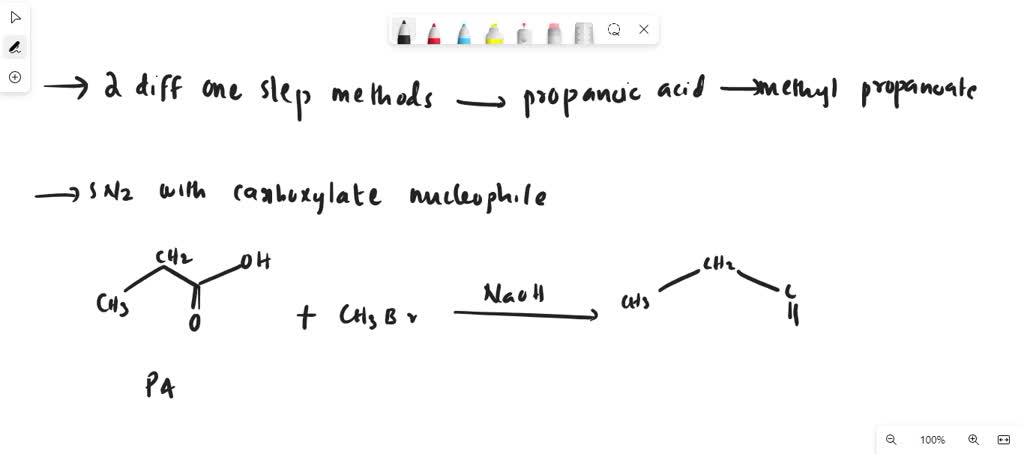 → 2 diff one step methods → propanoic acid → methyl propanoate
→ SN2 with carboxylate nucleophile
CH2 OH CH2
CH3 O + CH3Br NaOH CH3 C
PA
100%